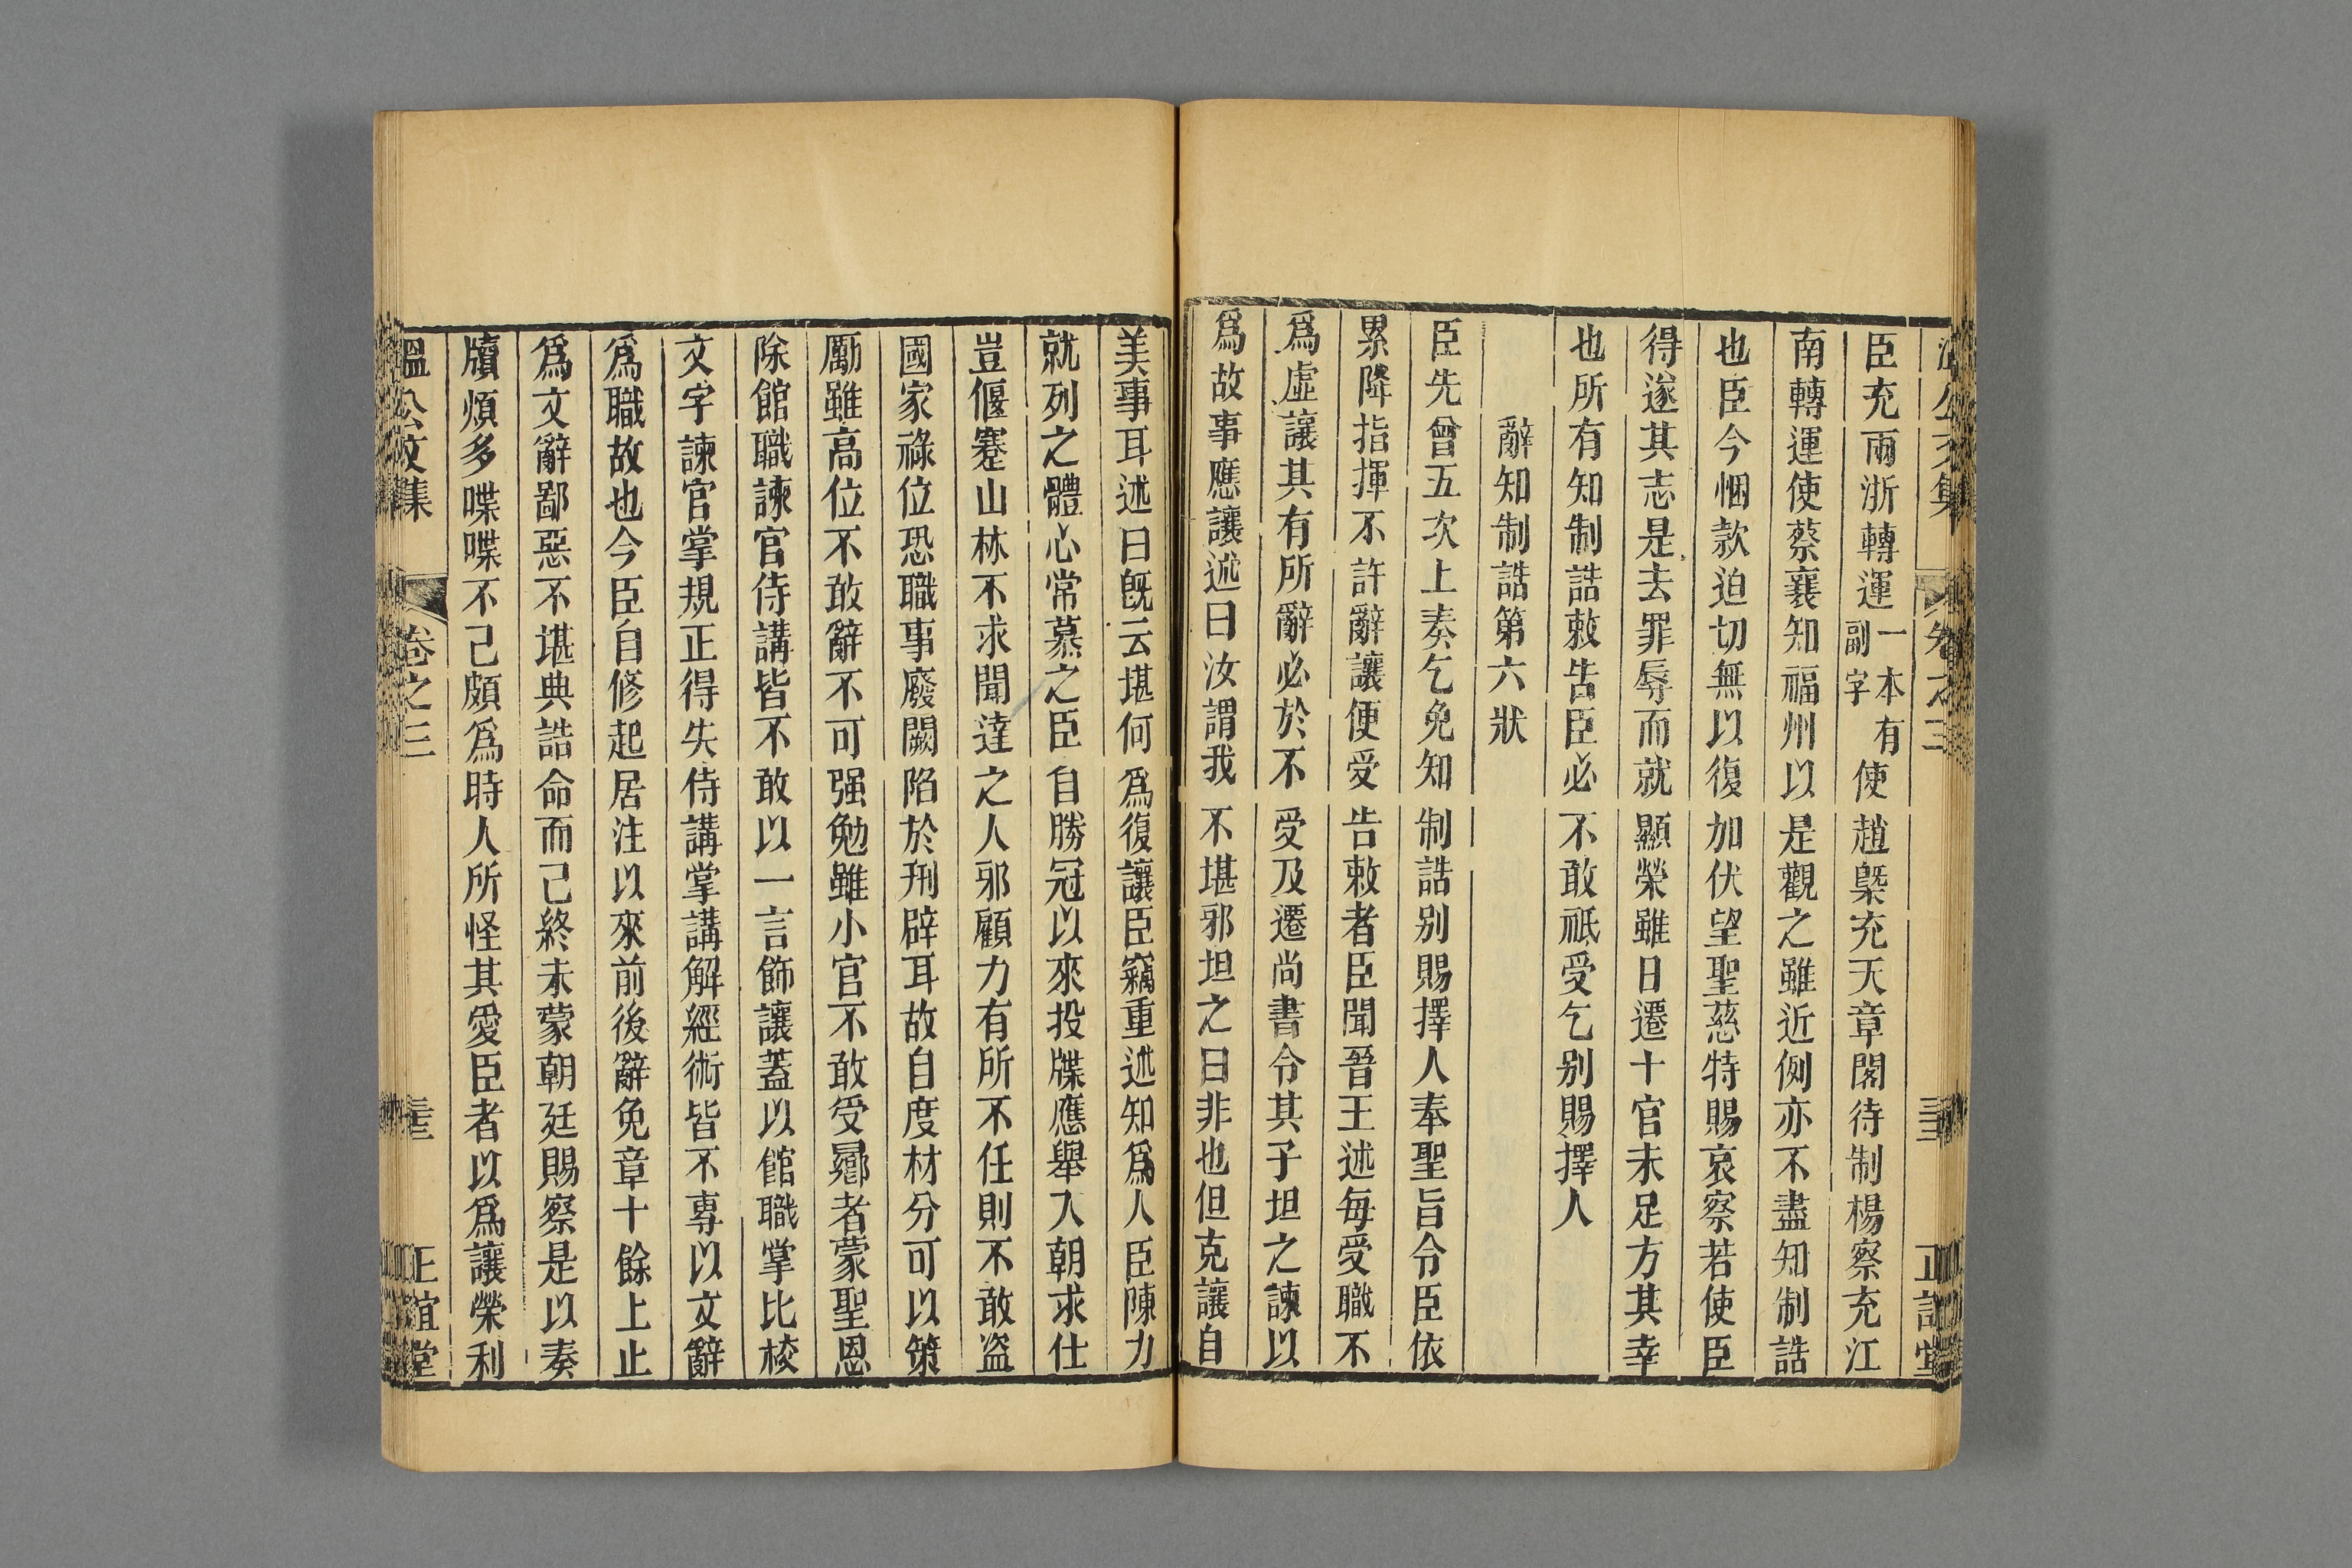 臣充兩浙轉運一本有副字使趙槩充天章閣待制楊察充江
南轉運使蔡襄知福州以是觀之雖近例亦不盡知制誥
也臣今悃款迫切無以復加伏望聖慈特賜哀察若使臣
得遂其志是去罪辱而就顯榮雖日遷十官未足方其幸
也所有知制誥敕告臣必不敢祗受乞别賜擇人
辭知制誥第六狀
臣先曾五次上奏乞免知制誥别賜擇人奉聖旨令臣依
累降指揮不許辭讓便受告敕者臣聞晉王述每受職不
爲虛讓其有所辭必於不受及遷尚書令其子坦之諫以
爲故事應讓述曰汝謂我不堪邪坦之曰非也但克讓自
美事耳述曰旣云堪何爲復讓臣竊重述知爲人臣陳力
就列之體心常慕之臣自勝冠以來投牒應舉入朝求仕
豈偃蹇山林不求聞達之人邪顧力有所不任則不敢盗
國家祿位恐職事廢闕陷於刑辟耳故自度材分可以策
勵雖高位不敢辭不可强勉雖小官不敢受曏者蒙聖恩
除館職諫官侍講皆不敢以一言飾讓蓋以館職掌比校
文字諫官掌規正得失侍講掌講解經術皆不專以文辭
爲職故也今臣自修起居注以來前後辭免章十餘上止
爲文辭鄙惡不堪典誥命而已終未蒙朝廷賜察是以奏
牘煩多喋喋不已頗爲時人所怪其愛臣者以爲讓榮利
溫公文集 卷之三 正誼堂